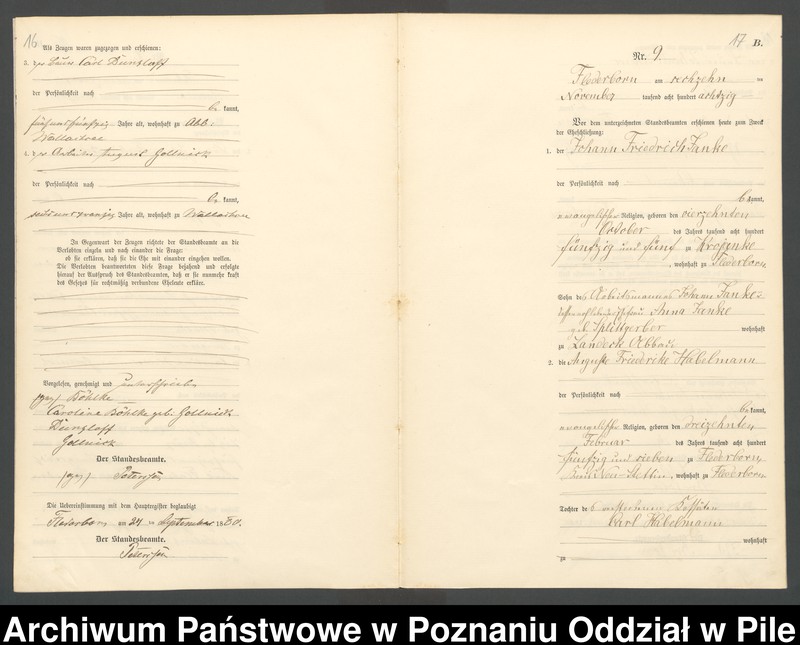 16
Als Zeugen waren zugezogen und erschienen:
2. der Carl Dunzlaff
der Persönlichkeit nach
be kannt,
fünfundfünfzig Jahre alt, wohnhaft zu Abb:
Wallachsee
4. der Arbeiter August Gollnick
der Persönlichkeit nach
be kannt,
Jahre alt, wohnhaft zu Wallachsee
In Gegenwart der Zeugen richtete der Standesbeamte an die
Verlobten einzeln und nach einander die Frage:
ob sie erklären, daß sie die Ehe mit einander eingehen wollen.
Die Verlobten beantworteten diese Frage bejahend und erfolgte
hierauf der Ausspruch des Standesbeamten, daß er sie nunmehr kraft
des Gesetzes für rechtmäßig verbundene Eheleute erkläre.
Vorgelesen, genehmigt und unterschrieben
(gez) Böhlke
Caroline Böhlke geb. Gollnick
Dunzlaff
Gollnick
Der Standesbeamte.
(gez) Petersson
Die Uebereinstimmung mit dem Hauptregister beglaubigt
Flederborn am 24 ten September 1880.
Der Standesbeamte.
Petersson
17 B.
Nr. 9.
Flederborn am sechzehn ten
November tausend acht hundert achtzig
Vor dem unterzeichneten Standesbeamten erschienen heute zum Zweck
der Eheschließung:
1. der Johann Friedrich Janke
der Persönlichkeit nach
be kannt,
evangelischer Religion, geboren den vierzehnten
October des Jahres tausend acht hundert
fünfzig und fünf zu Krojanke
, wohnhaft zu Flederborn
Sohn des Arbeitsmannes Johann Janke
Anna Janke
geb Splittgerber wohnhaft
zu Landeck Abbau
2. die Auguste Friederike Habelmann
der Persönlichkeit nach
be kannt,
evangelischer Religion, geboren den dreizehnten
Februar des Jahres tausend acht hundert
fünfzig und sieben zu Flederborn
Neu-Stettin, wohnhaft zu Flederborn
Tochter des verstorbenen Kossäten
Carl Habelmann
wohnhaft
zu
Archiwum Państwowe w Poznaniu Oddział w Pile